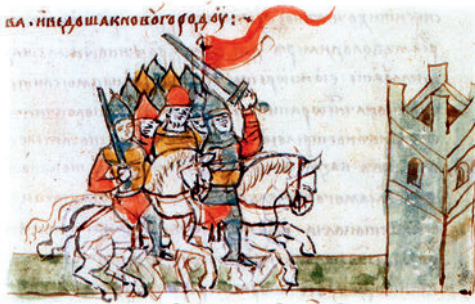 ва · и ведоша к новогородоу :·